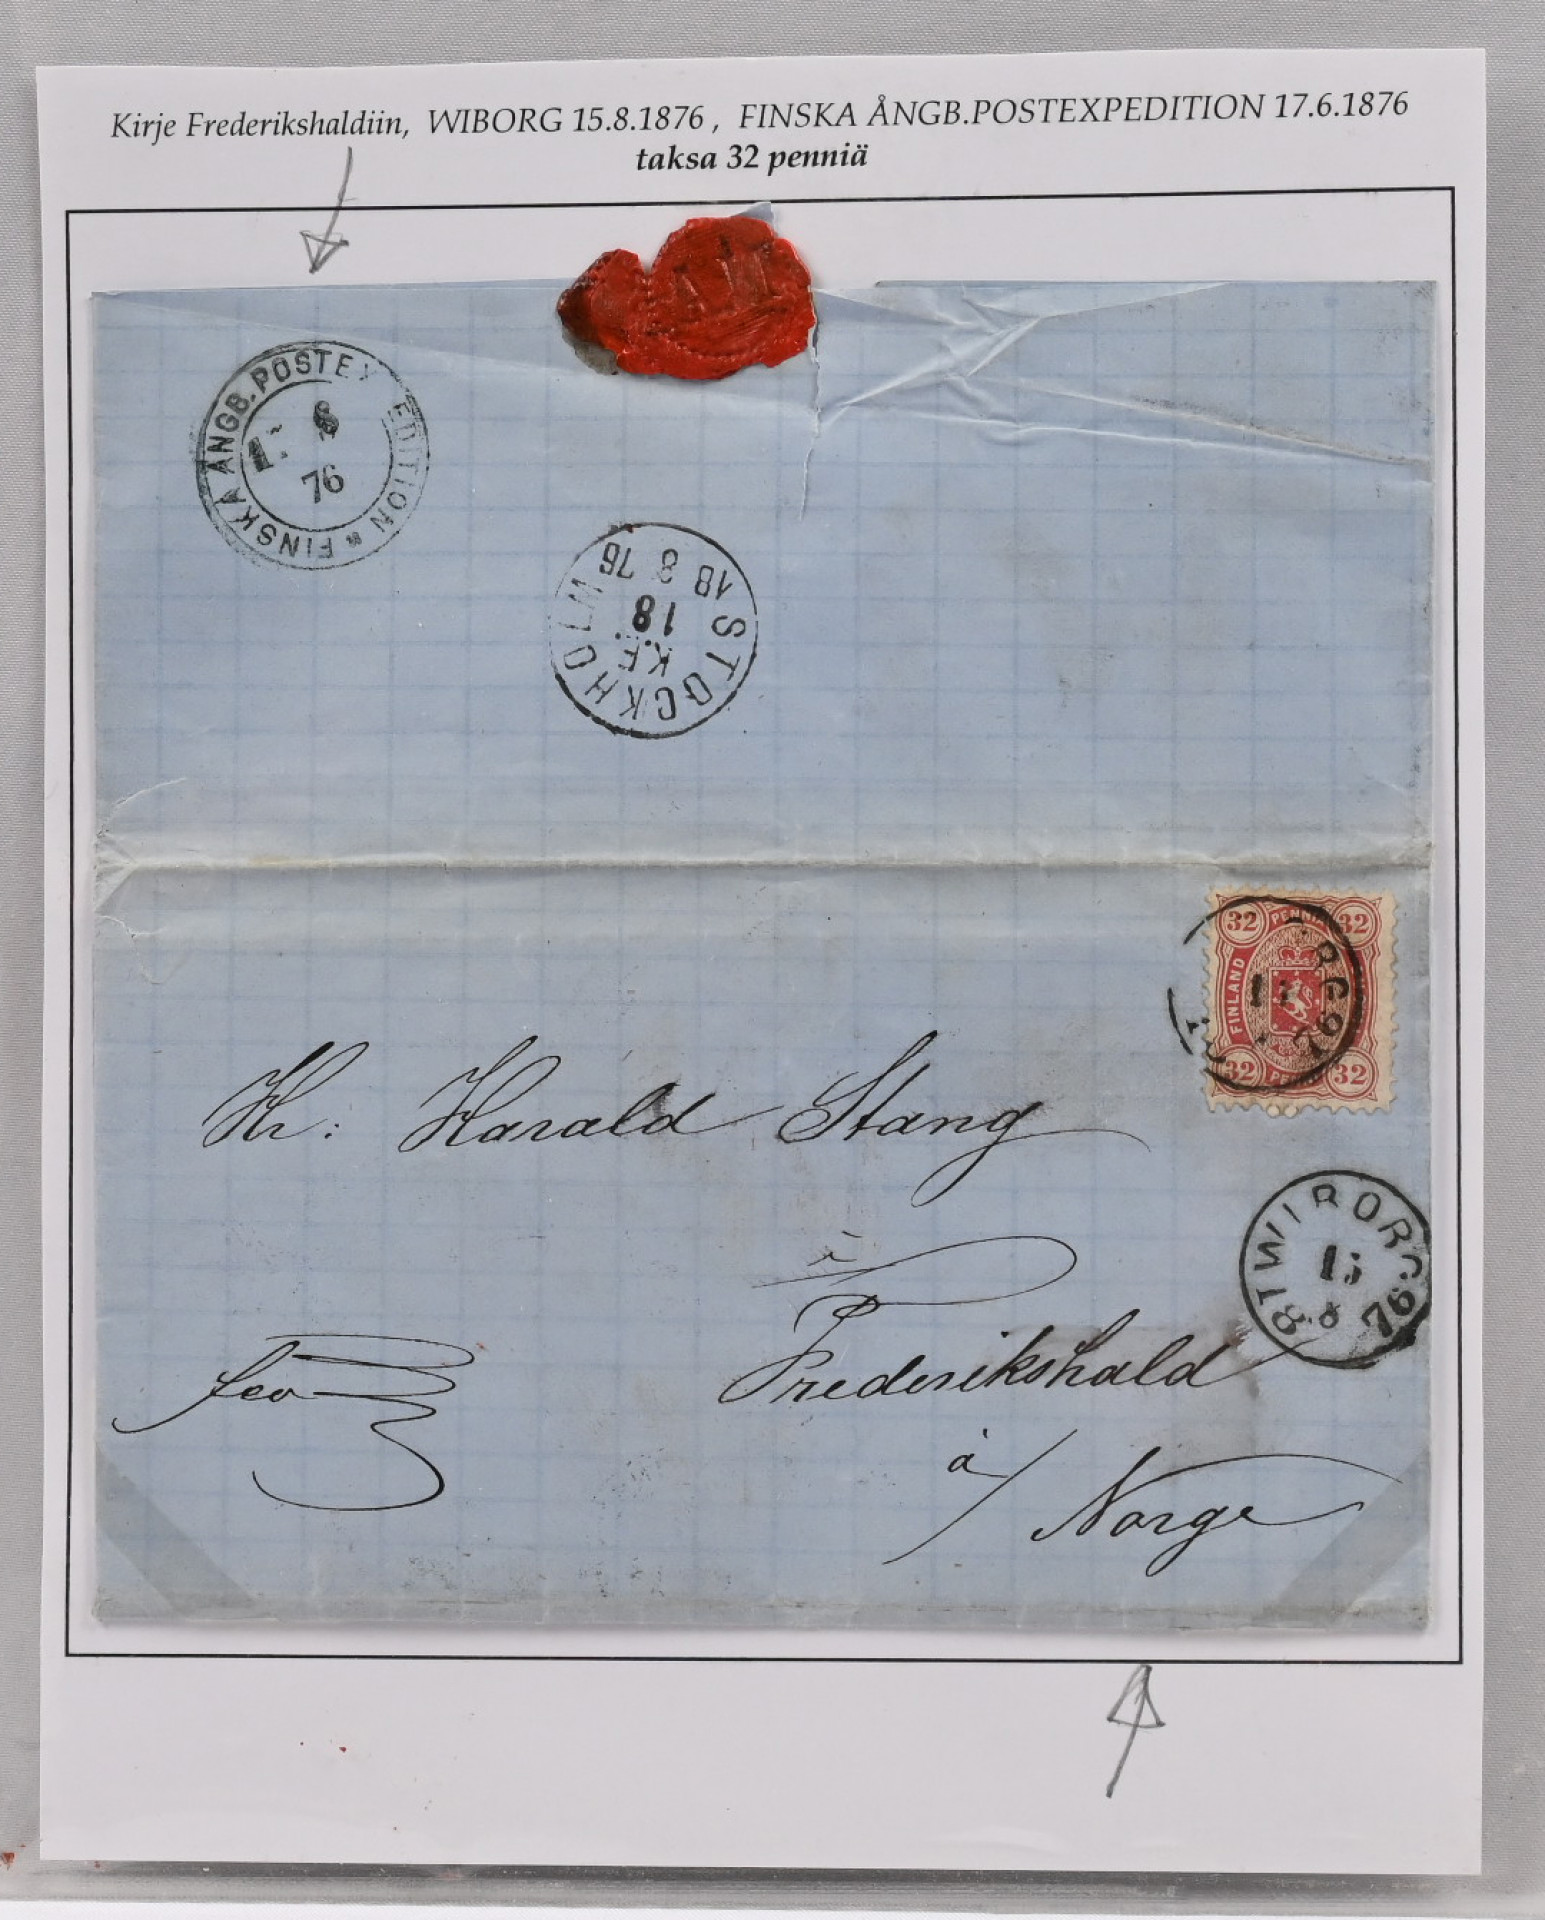 Kirje Frederikshaldiin, WIBORG 15.8.1876, FINSKA ÅNGB.POSTEXPEDITION 17.6.1876
taksa 32 penniä
FINSKA ÅNGB.POSTEX EDITION
8
76
STOCKHOLM
18 8 76
18
K.F.
32 PENNIÄ 32
FINLAND
32 PE 32
RG
76
Hr: Harald Stang
WIBORG
15
8
76
Frederikshald
fco
à
Norge